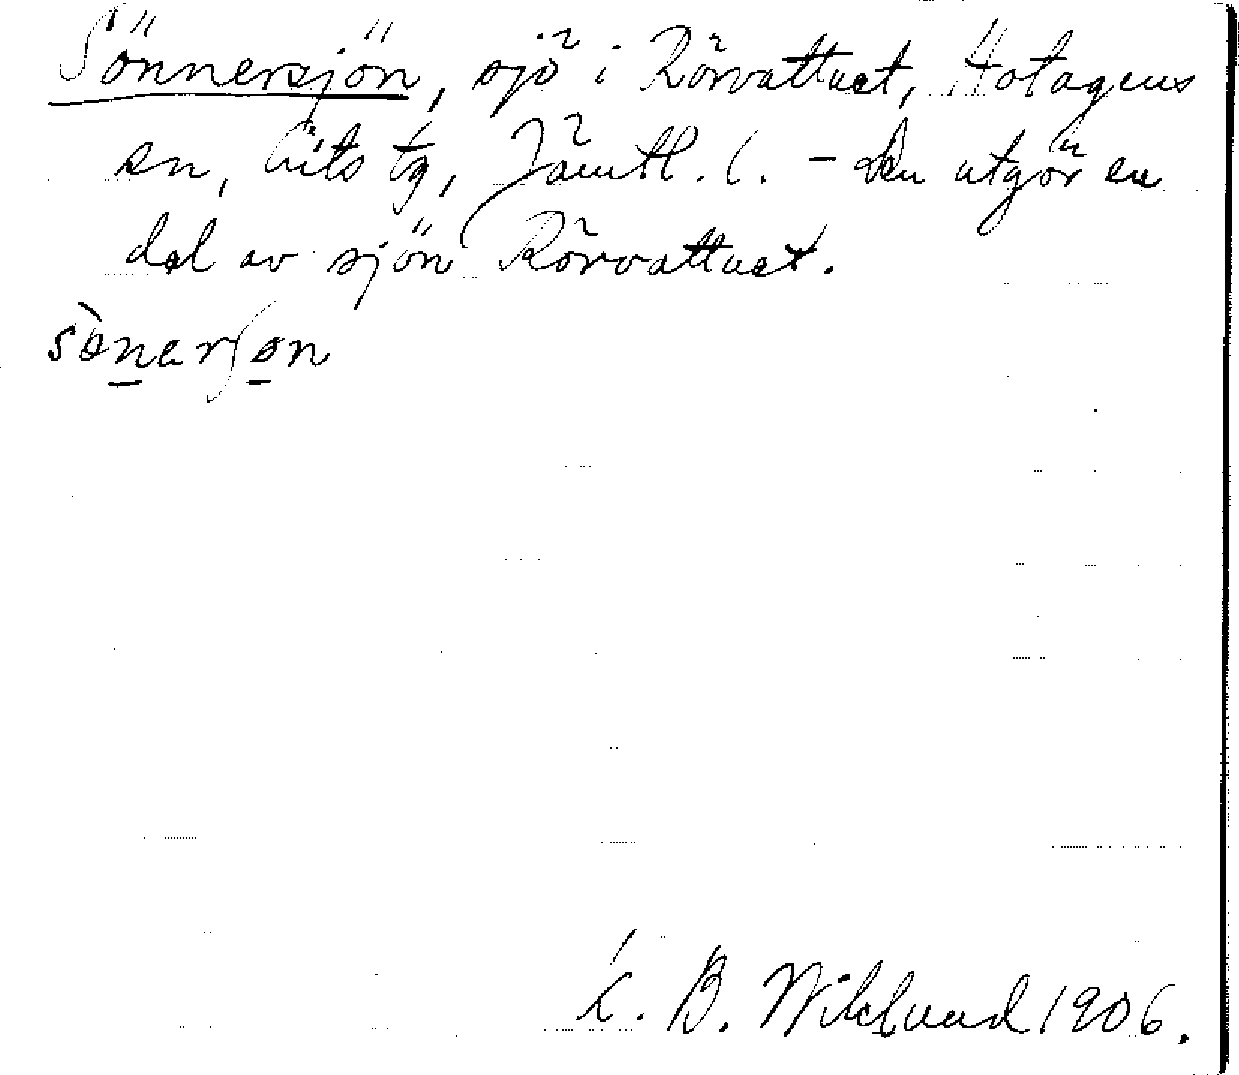 Sönnersjön, sjö i Rörvattnet, Hotagens
sn, Lits tg, Jämtl. l. – Den utgör en
del av sjön Rörvattnet.
sònerʃon
K. B. Wiklund 1906.